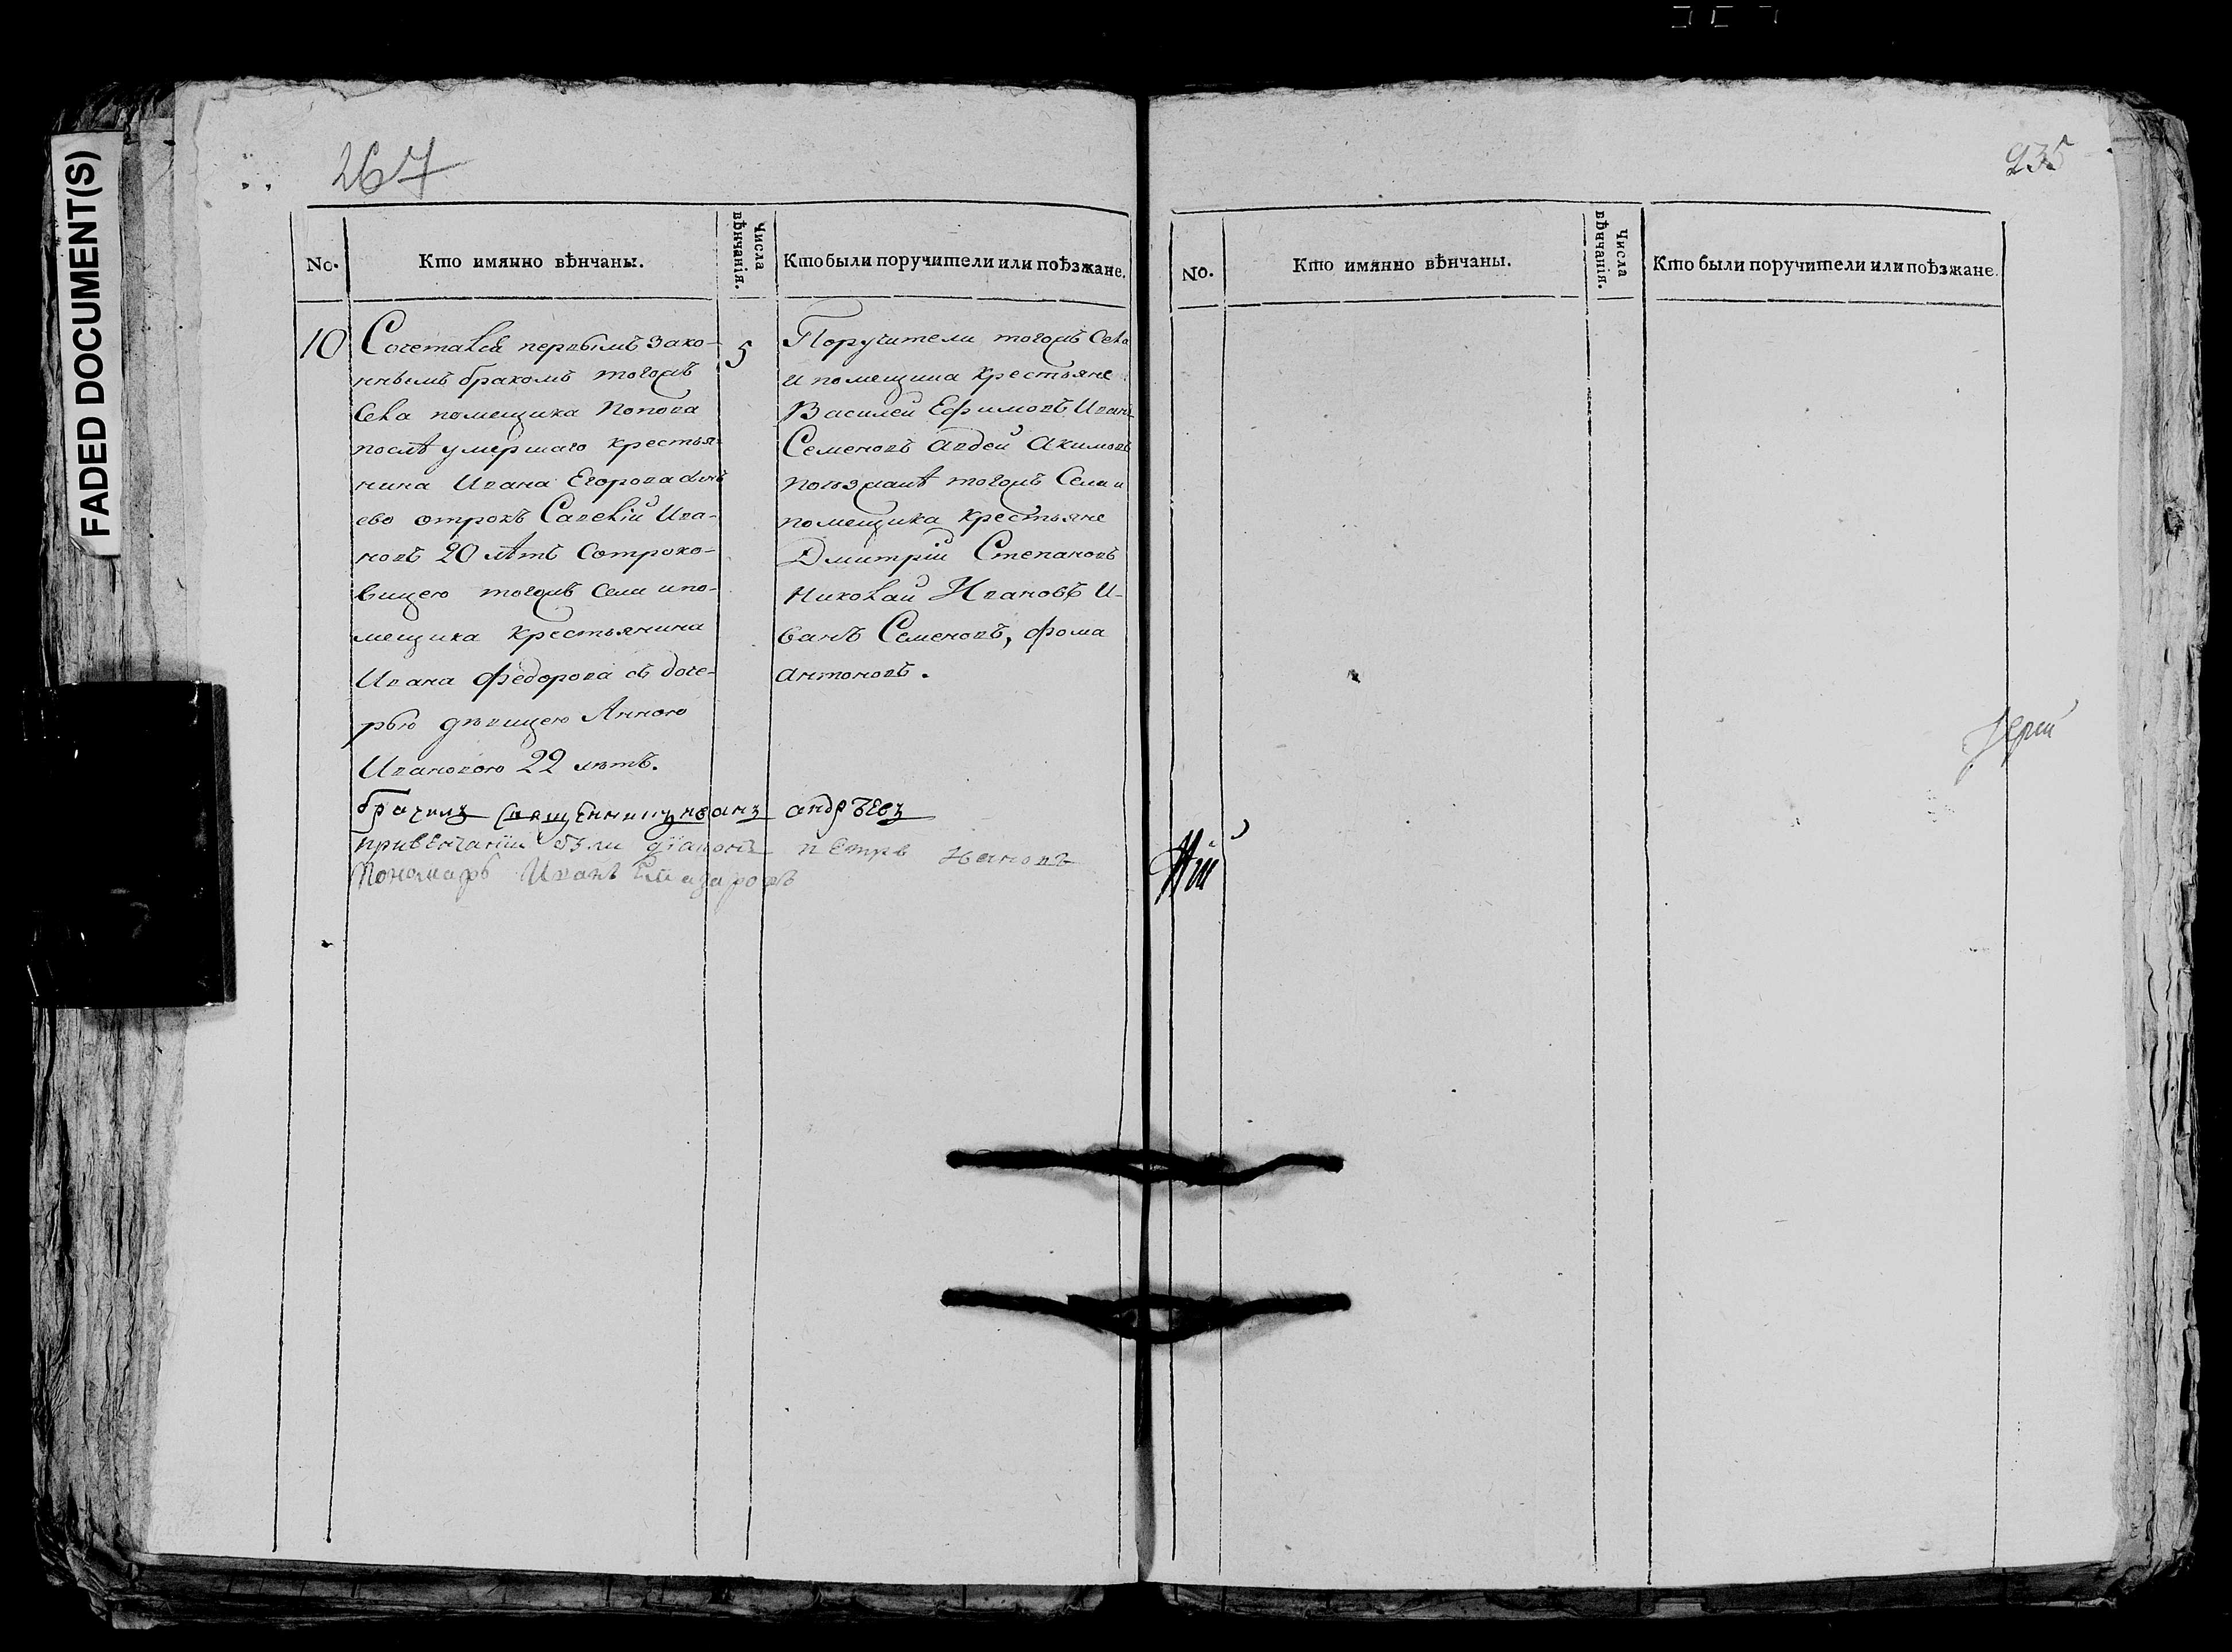 FADED DOCUMENT(S)
267
No.
Кто имянно вѣнчаны.
Числа вѣнчанія.
Кто были поручители или поѣзжане.
10
Сочетался первымъ зако-
ннымъ бракомъ тогожъ
Села помещика Попова
послѣ умершаго крестья-
нина Ивана Егорова сынъ
ево отрокъ Савелій Ива-
новъ 20 лѣтъ Сотроко-
вицею тогожъ Села ипо-
мещика крестьянина
Ивана Федорова съ доче-
рью девицею Анною
Ивановою 22 летъ.
5
Поручители тогожъ Села
и помещика крестьяне
Василей Ефимовъ Иванъ
Семеновъ авдей Акимовъ
поезжанѣ тогожъ Села и
помещика крестьяне
Дмитрій Степановъ
Николай Ивановъ И-
ванъ Семеновъ, фома
антоновъ.
брачилъ Священникъ иванъ андрѣевъ
привенчаніи были діаконъ петръ ивановъ
Пономарь Иванъ
235
No.
Кто имянно вѣнчаны.
Числа вѣнчанія.
Кто были поручители или поѣзжане.
Іерей